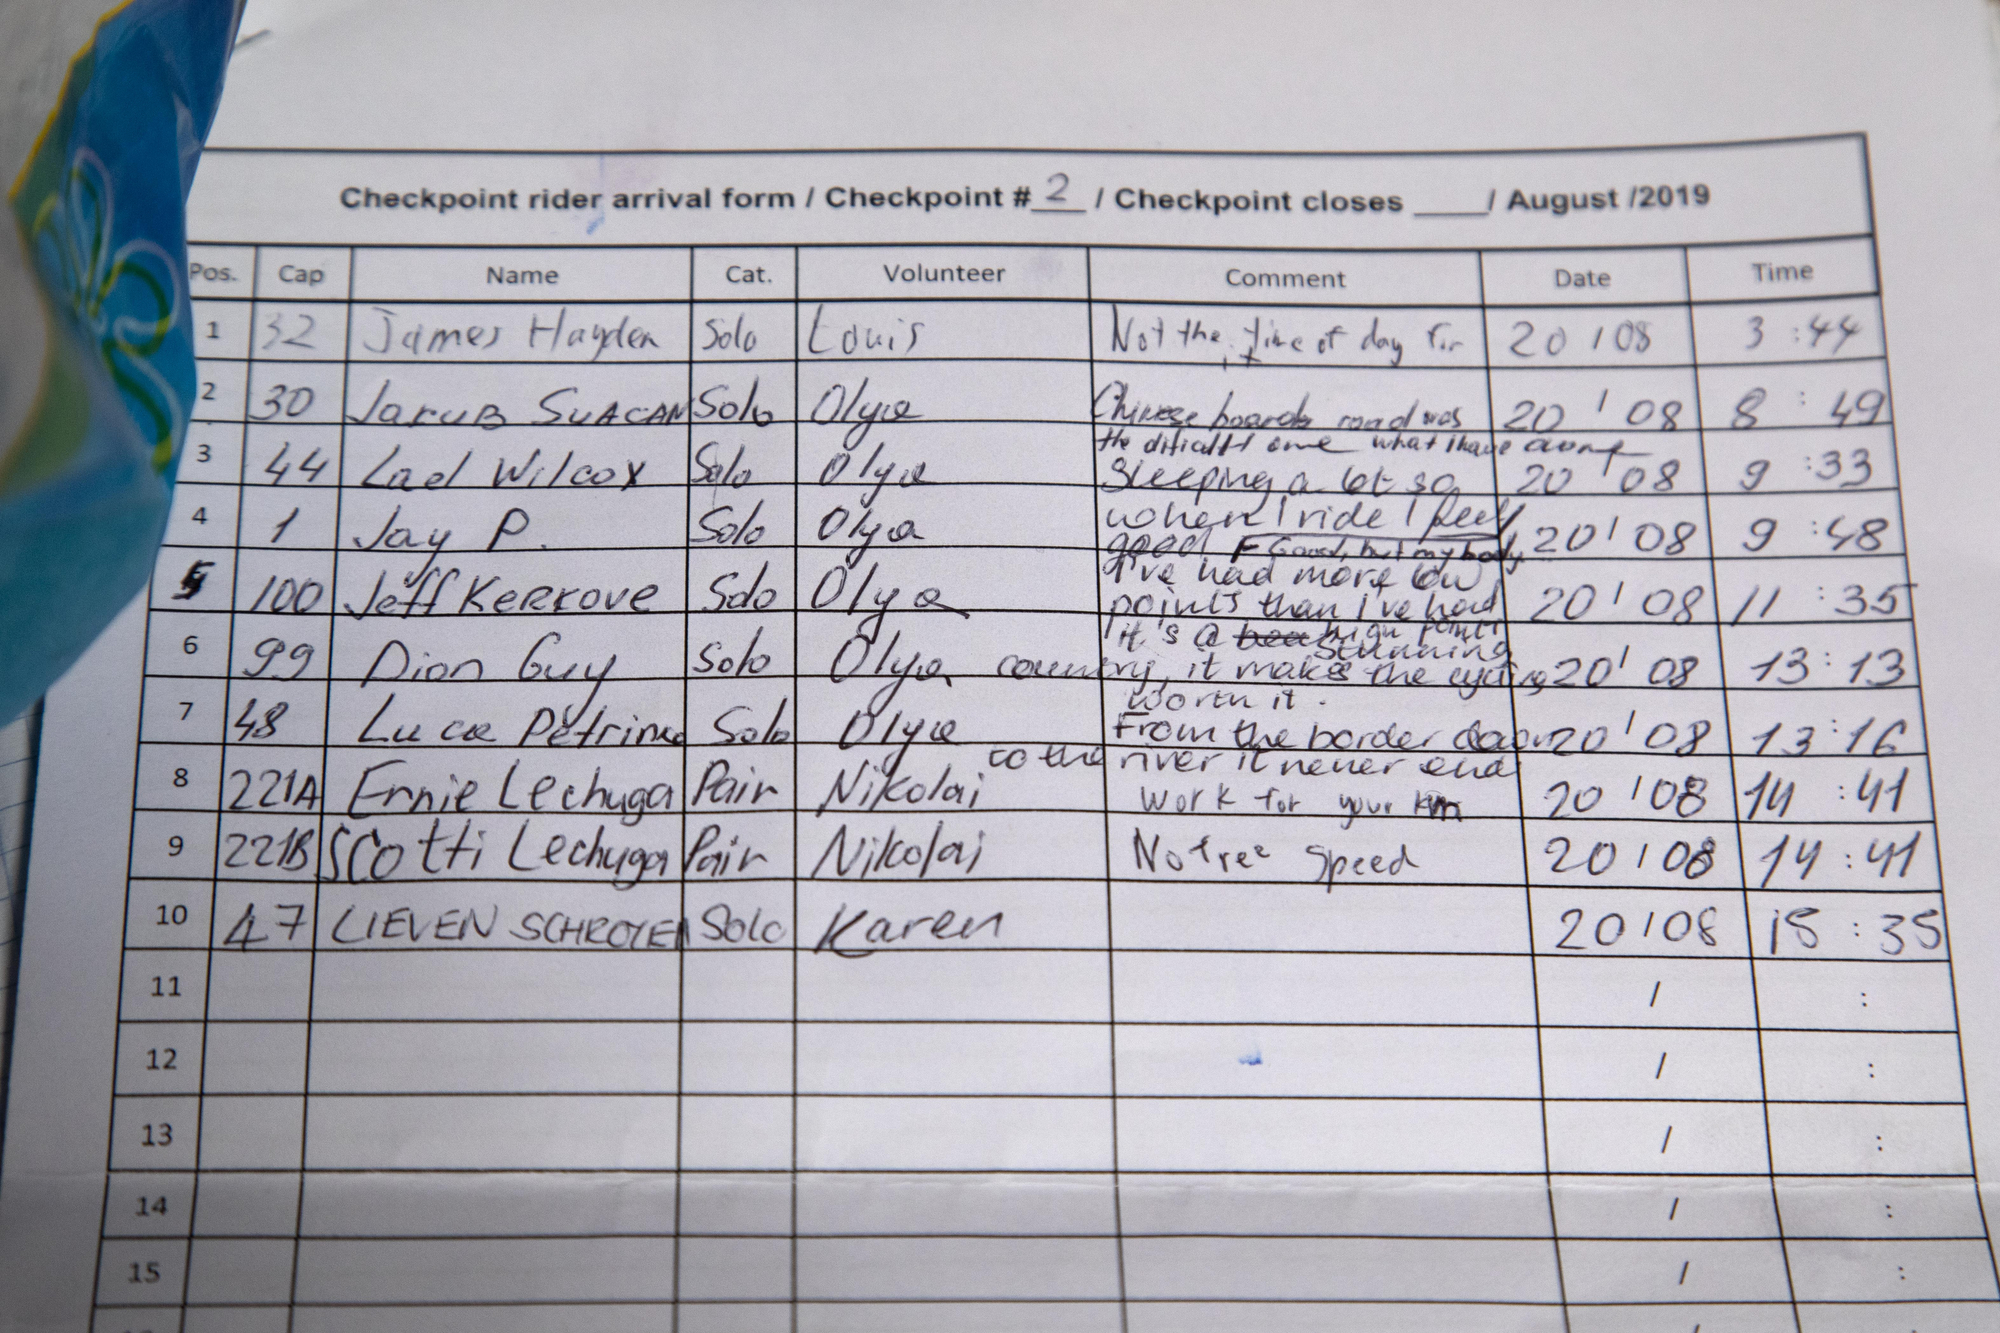 Checkpoint rider arrival form / Checkpoint # 2 / Checkpoint closes ____/ August /2019
Pos. Cap Name Cat. Volunteer Comment Date Time
1 32 James Hayden Solo Louis Not the time of day for 20 / 08 3 : 44
2 30 Jakub Solo Olya Chinese road was 20 / 08 8 : 49
the dificallt one what I have
3 44 Lael Wilcox Solo Olya Sleeping a lot so 20 / 08 9 : 33
4 1 Jay P. Solo Olya when I ride I feel 20 / 08 9 : 48
good Good, but my body
5 100 Jeff Kerkove Solo Olya I've had more low 20 / 08 11 : 35
points than I've had
it's a high points
6 99 Dion Guy Solo Olya stunning 20 / 08 13 : 13
country, it makes the cycling
worth it.
7 48 Luca Solo Olya From the border down 20 / 08 13 : 16
to the river it never end
8 221A Ernie Lechuga Pair Nikolai Work for your km 20 / 08 14 : 41
9 221B Scotti Lechuga Pair Nikolai No free speed 20 / 08 14 : 41
10 47 LIEVEN Solo Karen 20 / 08 15 : 35
11 / :
12 / :
13 / :
14 / :
15 / :